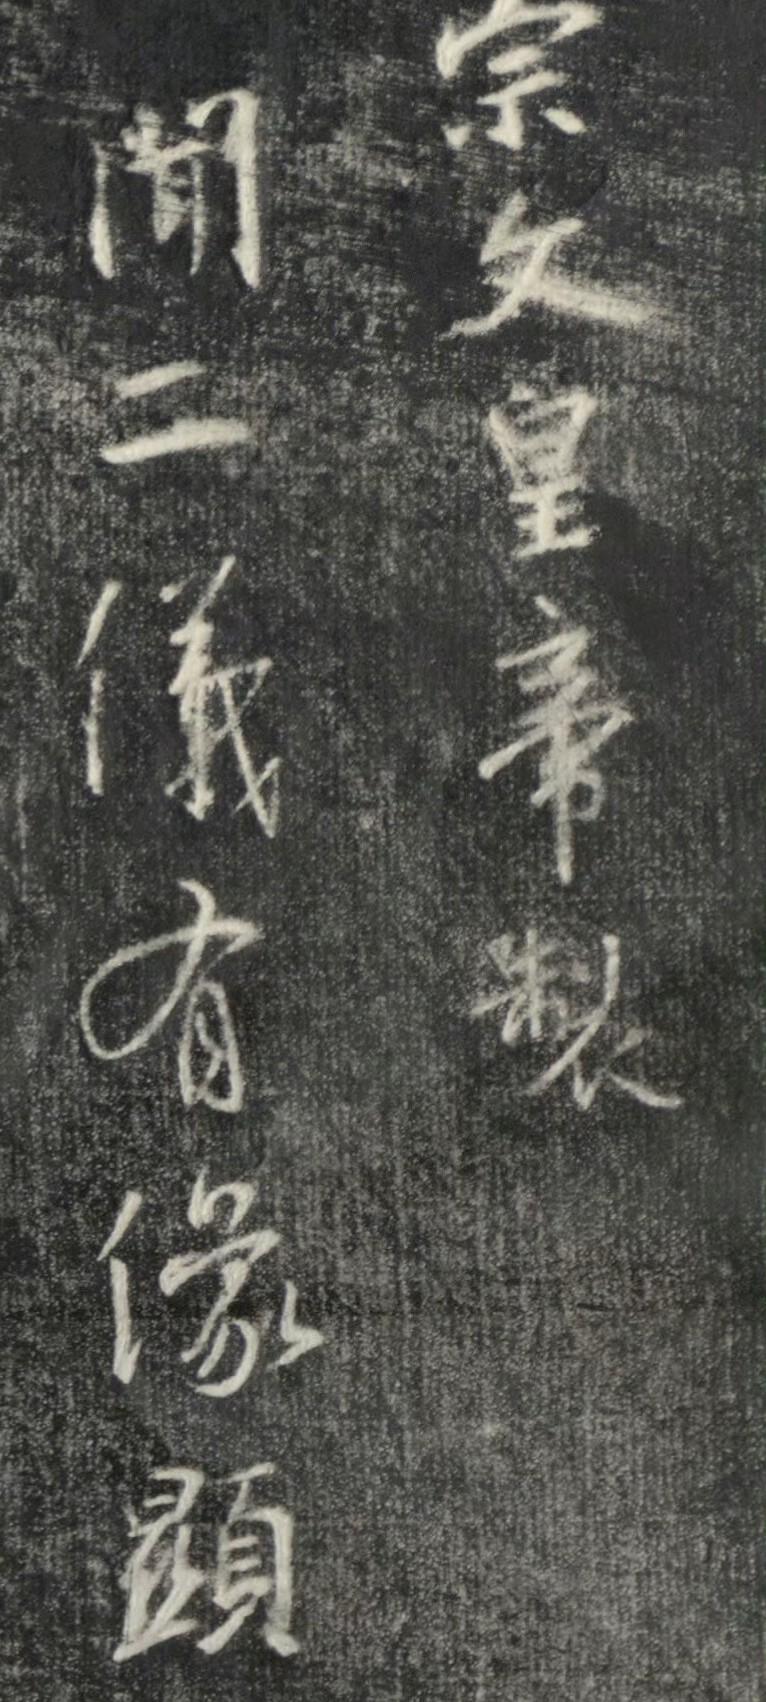 宗文皇帝製
聞二儀有像顯